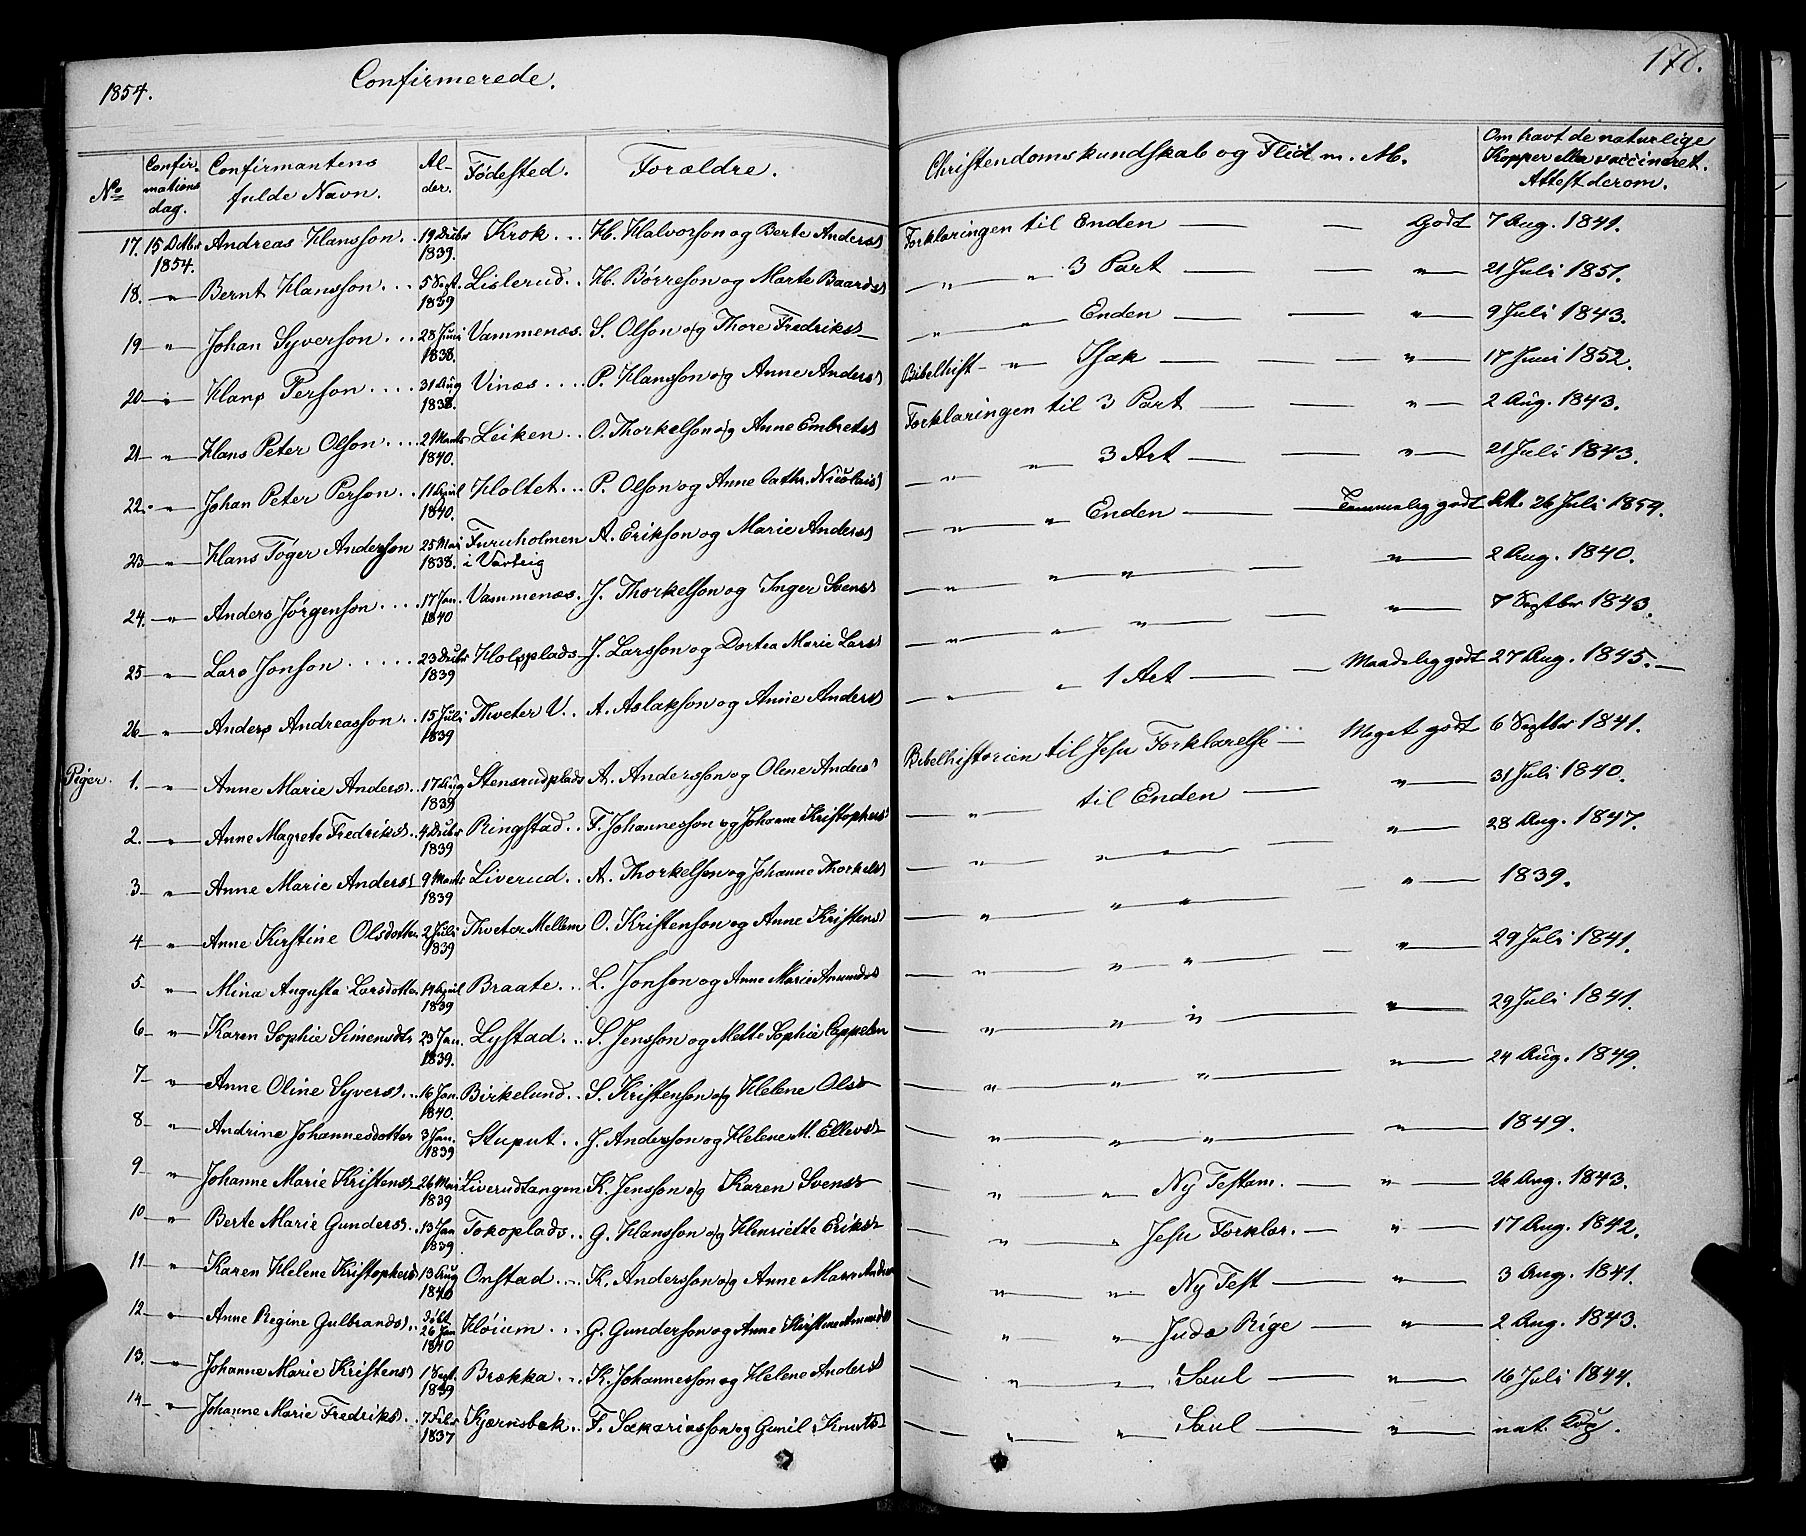 1854.
Confirmerede.
178.
No
Confirmations dag.
Confirmantens fulde Navn.
Alder.
Fødested.
Forældre.
Christendomskundskab og Flid m. M.
Om havt de naturlige Kopper eller vaccineret. Attest derom.
17. 15 Octbr 1854. Andreas Hansson. 19 Decbr 1839. Krok H. Halvorson og Berte Anders Forklaringen til Enden — Godt 7 Aug. 1841.
18. — " — Bernt Hansson 5 Sept. 1839 Lislerud H. Børreson og Marte Baards — " — " 3 Part — " — 21 Juli 1851.
19 — " — Johan Syverson 28 Juni 1838. Vammenæs. S. Olson og Thore Fredriks — " — " Enden — " — 9 Juli 1843.
20 — " — Hans Person 31 Aug 1838. Vinæs P. Hansson og Anne Anders Bibelhist — " — Isak — " — 17 Juni 1852.
21 — " — Hans Peter Olson 2 Marts 1840. Leiken O. Thorkelson og Anne Embrets Forklaringen til 3 Part — " — 2 Aug. 1843.
22. — " — Johan Peter Person 11 April 1840. Holtet P. Olson og Anne Cathr. Nicolais — " — " 3 Art — " — 21 Juli 1843.
23 — " — Hans Tøger Anderson 25 Mai 1838. Furuholmen i Varteig A. Erikson og Marie Anders — " — " Enden — Temmelig godt Att. 26 Juli 1854.
24. — " — Anders Jørgenson 17 Jan. 1840 Vammenæs. J. Thorkelson og Inger Svens — " — " " — " — 2 Aug. 1840.
25 — " — Lars Jonson 23 Decbr 1839 Holsplads J. Larsson og Dortea Marie Lars — " — " " — " — 7 Septbr 1843.
26 — " — Anders Andreasson 15 Juli 1839 Thveter V. A. Aslakson og Anne Anders — " — " 1 Art — Maadelig godt 27 Aug. 1845.
Piger.
1. — " — Anne Marie Anders 17 Aug 1839 Stensrudplads A. Andersson og Olene Anders Bibelhistorien til Jesu Forklarelse — Meget godt 6 Septbr 1841.
2. — " — Anne Magrete Fredriks 4 Decbr 1839 Ringstad F. Johannesson og Johanne Kristophers — " — til Enden — " — 31 Juli 1840.
3 — " — Anne Marie Anders 9 Marts 1839 Liverud A. Thorkelson og Johanne Thorkels — " — " " — " — 28 Aug. 1847.
4 — " — Anne Kirstine Olsdotter 2 Juli 1839 Thveter Mellem O. Kristenson og Anne Kristens — " — " " — " — 1839.
5 — " — Mina Augusta Larsdotter 19 April 1839 Braate L. Jonson og Anne Marie Amunds — " — " " — " — 29 Juli 1841.
6 — " — Karen Sophie Simensdtr 23 Jan. 1839. Lystad S. Jensson og Mette Sophie Cappelen — " — " " — " — 29 Juli 1841.
7 — " — Anne Oline Syvers 16 Jan. 1840. Birkelund S. Kristenson og Helene Ols — " — " " — " — 24 Aug. 1849.
8 — " — Andrine Johannesdotter 3 Jan. 1839 Stuput J. Andersson og Helene M. Ellevs — " — " " — " — 1849.
9 — " — Johanne Marie Kristens 26 Mai 1839 Liverudtangen K. Jensson og Karen Svens — " — " Ny Testam. — " — 26 Aug. 1843.
10 — " — Berte Marie Gunders 13 Jan 1839 Tokoplads G. Hansson og Henriette Eriks — " — " Jesu Forklar. — " — 17 Aug. 1842.
11 — " — Karen Helene Kristophers 13 Aug 1840 Onstad K. Andersson og Anne Marie Anders — " — " Ny Test — " — 3 Aug. 1841.
12 — " — Anne Regine Gulbrands døbt 26 Jan 1840 Høium G. Gunderson og Anne Kirstine Amunds — " — " Juda Rige — " — 2 Aug. 1843.
13. — " — Johanne Marie Kristens 1 Sept. 1839 Brækka K. Johannesson og Helene Anders — " — " Saul — " — 16 Juli 1844.
14 — " — Johanne Marie Fredriks 7 Febr 1837 Kjærnsbæk F. Sakariasson og Gunil Knuts — " — " Saul — " — nat. Kop.